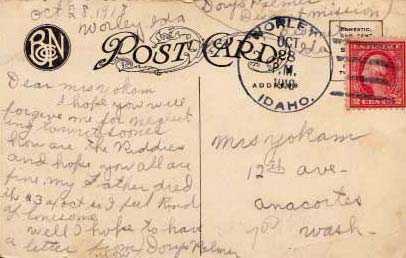 Oct 28, 1918
Worley Ida
Dorys Palmer
(De Smet Mission)
Ida
POST CARD
DOMESTIC,
ONE CENT
WORLEY
OCT
28
P.M.
1918
IDAHO.
ADDRESS
2 CENTS 2
Dear mrs yokam
I hope you will
forgive me for neglect
ing
sooner
how are the Kiddies
and hope you all are
fine my Father died
the 23 of oct so I feel Kind
of lonesome
well I hope to have
a letter from Dorys Palmer
now
Mrs Yokam
12th ave-
anacortes
wash-